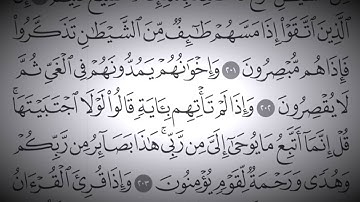 الَّذِينَ اتَّقَوْا إِذَا مَسَّهُمْ طَائِفٌ مِنَ الشَّيْطَانِ تَذَكَّرُوا
فَإِذَا هُمْ مُبْصِرُونَ ٢٠١ وَإِخْوَانُهُمْ يَمُدُّونَهُمْ فِي الْغَيِّ ثُمَّ
لَا يُقْصِرُونَ ٢٠٢ وَإِذَا لَمْ تَأْتِهِمْ بِآيَةٍ قَالُوا لَوْلَا اجْتَبَيْتَهَا
قُلْ إِنَّمَا أَتَّبِعُ مَا يُوحَى إِلَيَّ مِنْ رَبِّي هَذَا بَصَائِرُ مِنْ رَبِّكُمْ
وَهُدًى وَرَحْمَةٌ لِقَوْمٍ يُؤْمِنُونَ ٢٠٣ وَإِذَا قُرِئَ الْقُرْآنُ